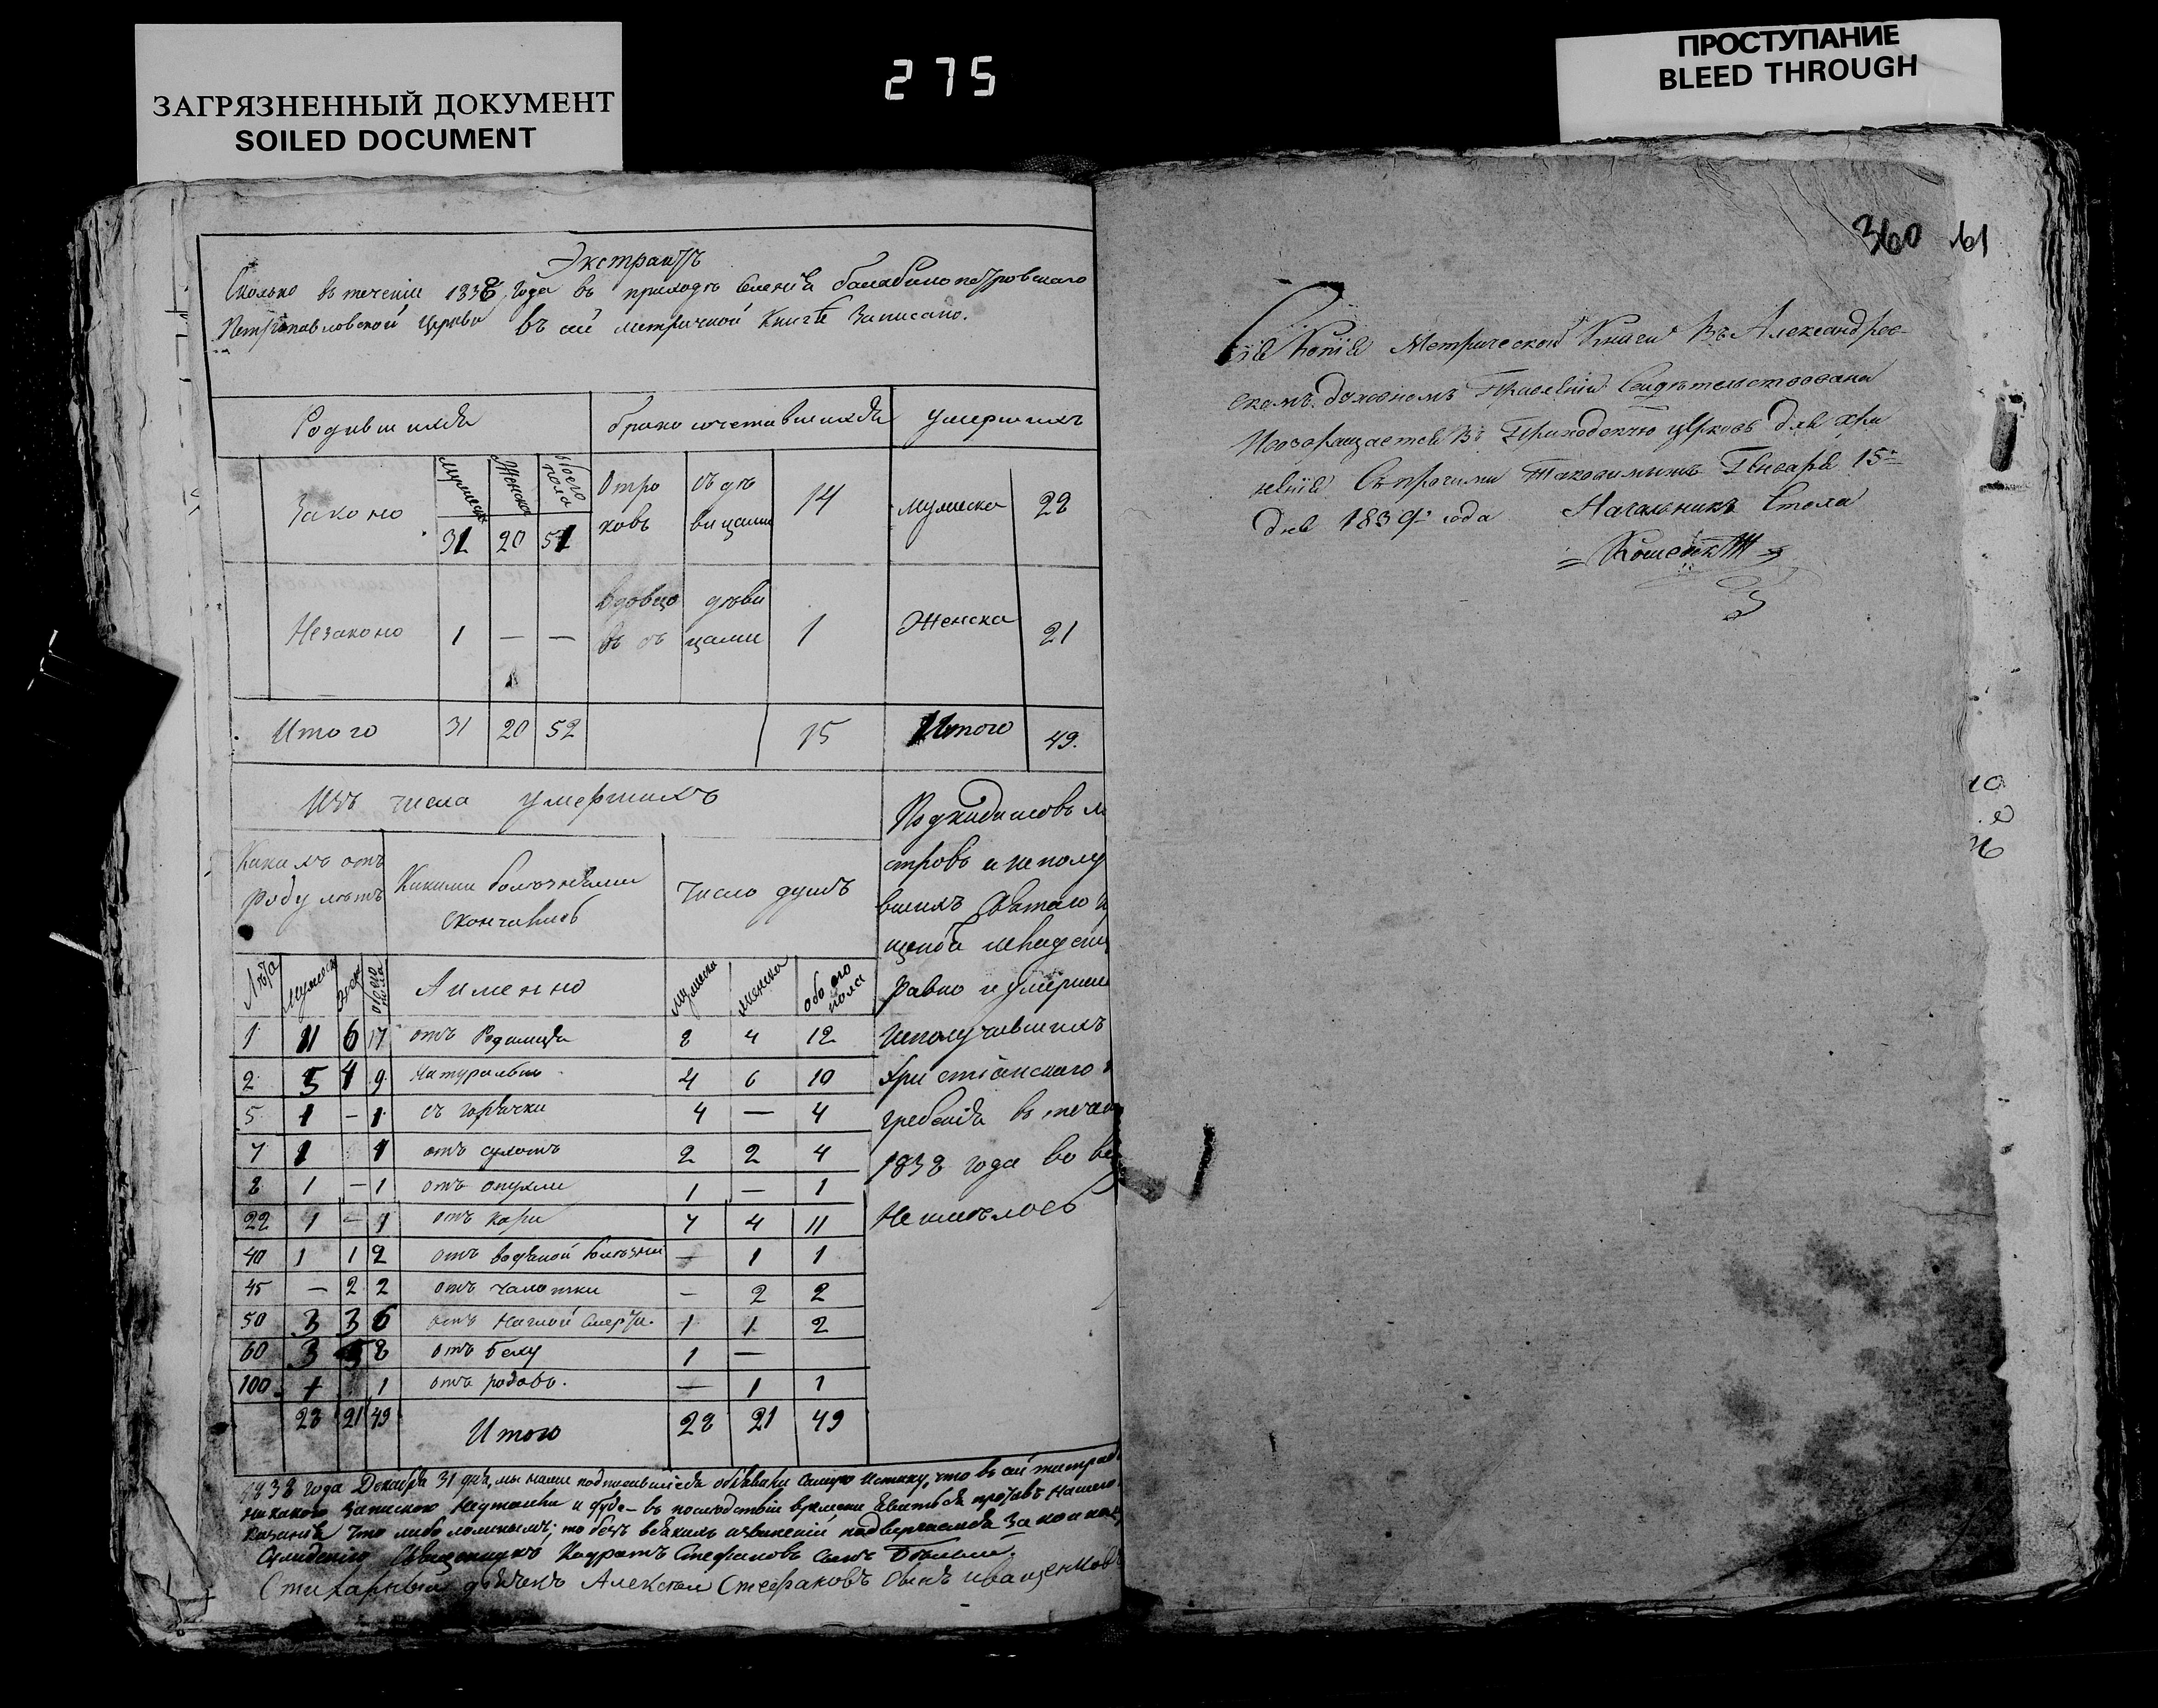 ЗАГРЯЗНЕННЫЙ ДОКУМЕНТ
SOILED DOCUMENT
275
ПРОСТУПАНИЕ
BLEED THROUGH
Экстрактъ
Сколько въ теченіи 1838 года въ приходѣ селенія балабинопетровскаго
Петропавловской Церкви въ сей метричной Книгѣ Записано.
Родившихся
бракосочетавшихся
умершихъ
Законо
мужеска
Женска
обоего пола
31 20 51
Отроковъ
съ дѣвицами
14
мужеска
28
Незаконо
1 — —
вдовцовъ съ
дѣвицами
1
Женска
21
Итого
31 20 52
15
Итого
49.
Изъ числа умершихъ
Какихъ отъ
роду лѣтъ
Какими болѣзнями
скончались
Число душъ
Лѣта
мужеска
жен
обоего пола
А именно
мужеска
женска
обоего
пола
1 11 6 17 отъ Родимца 8 4 12
2 5 4 9 натурально 4 6 10
5 1 — 1 съ горячки 4 — 4
7 1 1 отъ сухотъ 2 2 4
8 1 — 1 отъ опухли 1 — 1
22 1 — 1 отъ кори 7 4 11
40 1 1 2 отъ водяной болѣзни — 1 1
45 — 2 2 отъ чахотки — 2 2
50 3 3 6 отъ Наглой Смерти. 1 1 2
60 3 5 8 отъ боку 1 —
100 1 1 отъ родовъ. — 1 1
28 21 49 Итого 28 21 49
Подкидишовъ
стровъ и неполу
вшихъ Святаго
щенія
равно и умерши
неполучившихъ
Христіанскаго
гребенія въ тече
1838 года во
неимѣлось
1838 года Декабря 31 дня, мы ниже подписавшіеся объявили самую истину, что въ сей
никакого запискою неутаили и буде въ послѣдствіи времени явится противъ нашего
казанія что либо ложнымъ; то безъ всякихъ извиненій подвергаемся
Сужденію Священникъ Кодратъ Стефановъ сынъ
Стихарный дьячекъ Алексѣй Стефановъ сынъ иващенковъ
360 61
Сія Копія Метрической Книги Въ Александров-
скомъ духовномъ Правленіи Свидѣтельствована
И возвращается въ Приходскую церковь для хра
ненія Съ прочими таковимыжъ Генваря 15
дня 1839 года Начальникъ Стола